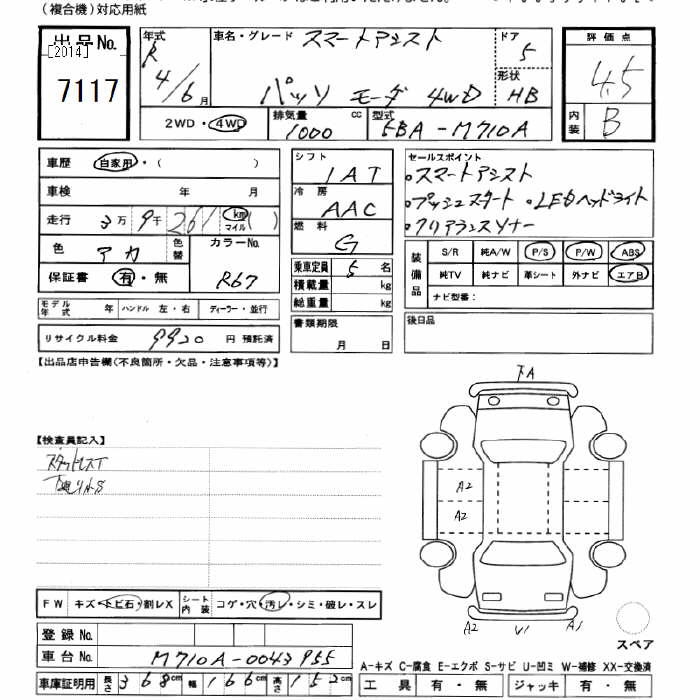 (複合機)対応用紙
出品No.
[2014]
7117
年式 R 4/6月
車名・グレード スマートアシスト
パッソ モーダ 4WD
ドア 5
形状 HB
2WD・4WD
排気量 1000 cc
型式 5BA-M710A
評価点
4.5
内装 B
車歴 自家用・( )
車検 年 月
走行 3万 9千 261 km マイル ( )
色 アカ 色替 カラーNo. R67
保証書 有・無
モデル年式 年 ハンドル 左・右 ディーラー・並行
リサイクル料金 9920 円 預託済
シフト IAT
冷房 AAC
燃料 G
乗車定員 5 名
積載量 kg
総重量 kg
書類期限 月 日
セールスポイント
・スマートアシスト
・プッシュスタート ・LEDヘッドライト
・クリアランスソナー
装備品
S/R 純A/W P/S P/W ABS
純TV 純ナビ 革シート 外ナビ エアB
ナビ型番:
後日品
【出品店申告欄(不良箇所・欠品・注意事項等)】
【検査員記入】
スタッドレスT
下A
A2
A2
A2 U1 A1
スペア
FW キズ・トビ石・割レX シート内装 コゲ・穴・汚レ・シミ・破レ・スレ
登録No.
車台No. M710A-0043955
車庫証明用 長さ 368cm 幅 166cm 高さ 152cm
A-キズ C-腐食 E-エクボ S-サビ U-凹ミ W-補修 XX-交換済
工具 有・無 ジャッキ 有・無